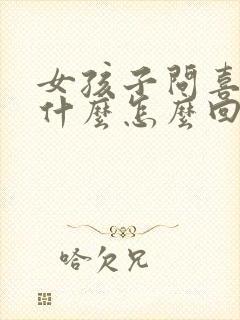 女孩子問喜
什麼怎麼回
哈欠兄